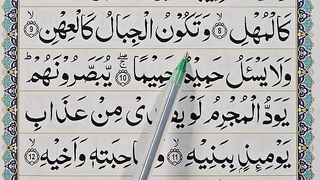 كَالْمُهْلِ ۝٨ وَتَكُوْنُ الْجِبَالُ كَالْعِهْنِ ۝٩
وَلَا يَسْـَٔلُ حَمِيْمٌ حَمِيْمًا ۝١٠ يُّبَصَّرُوْنَهُمْ
يَوَدُّ الْمُجْرِمُ لَوْ مِنْ عَذَابِ
يَوْمِئِذٍۭ بِبَنِيْهِ ۝١١ وَاَخِيْهِ ۝١٢